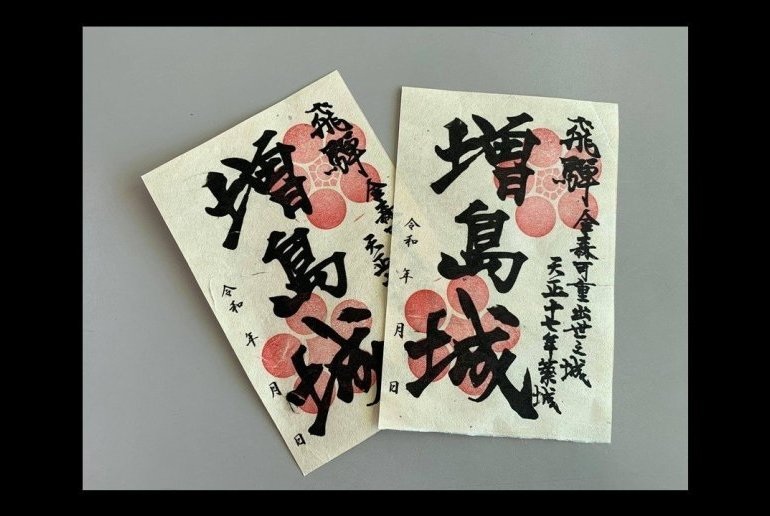 飛騨
金森
天正
増島城
令和 年 月 日
飛騨 金森可重出世之城
天正十七年築城
増島城
令和 年 月 日